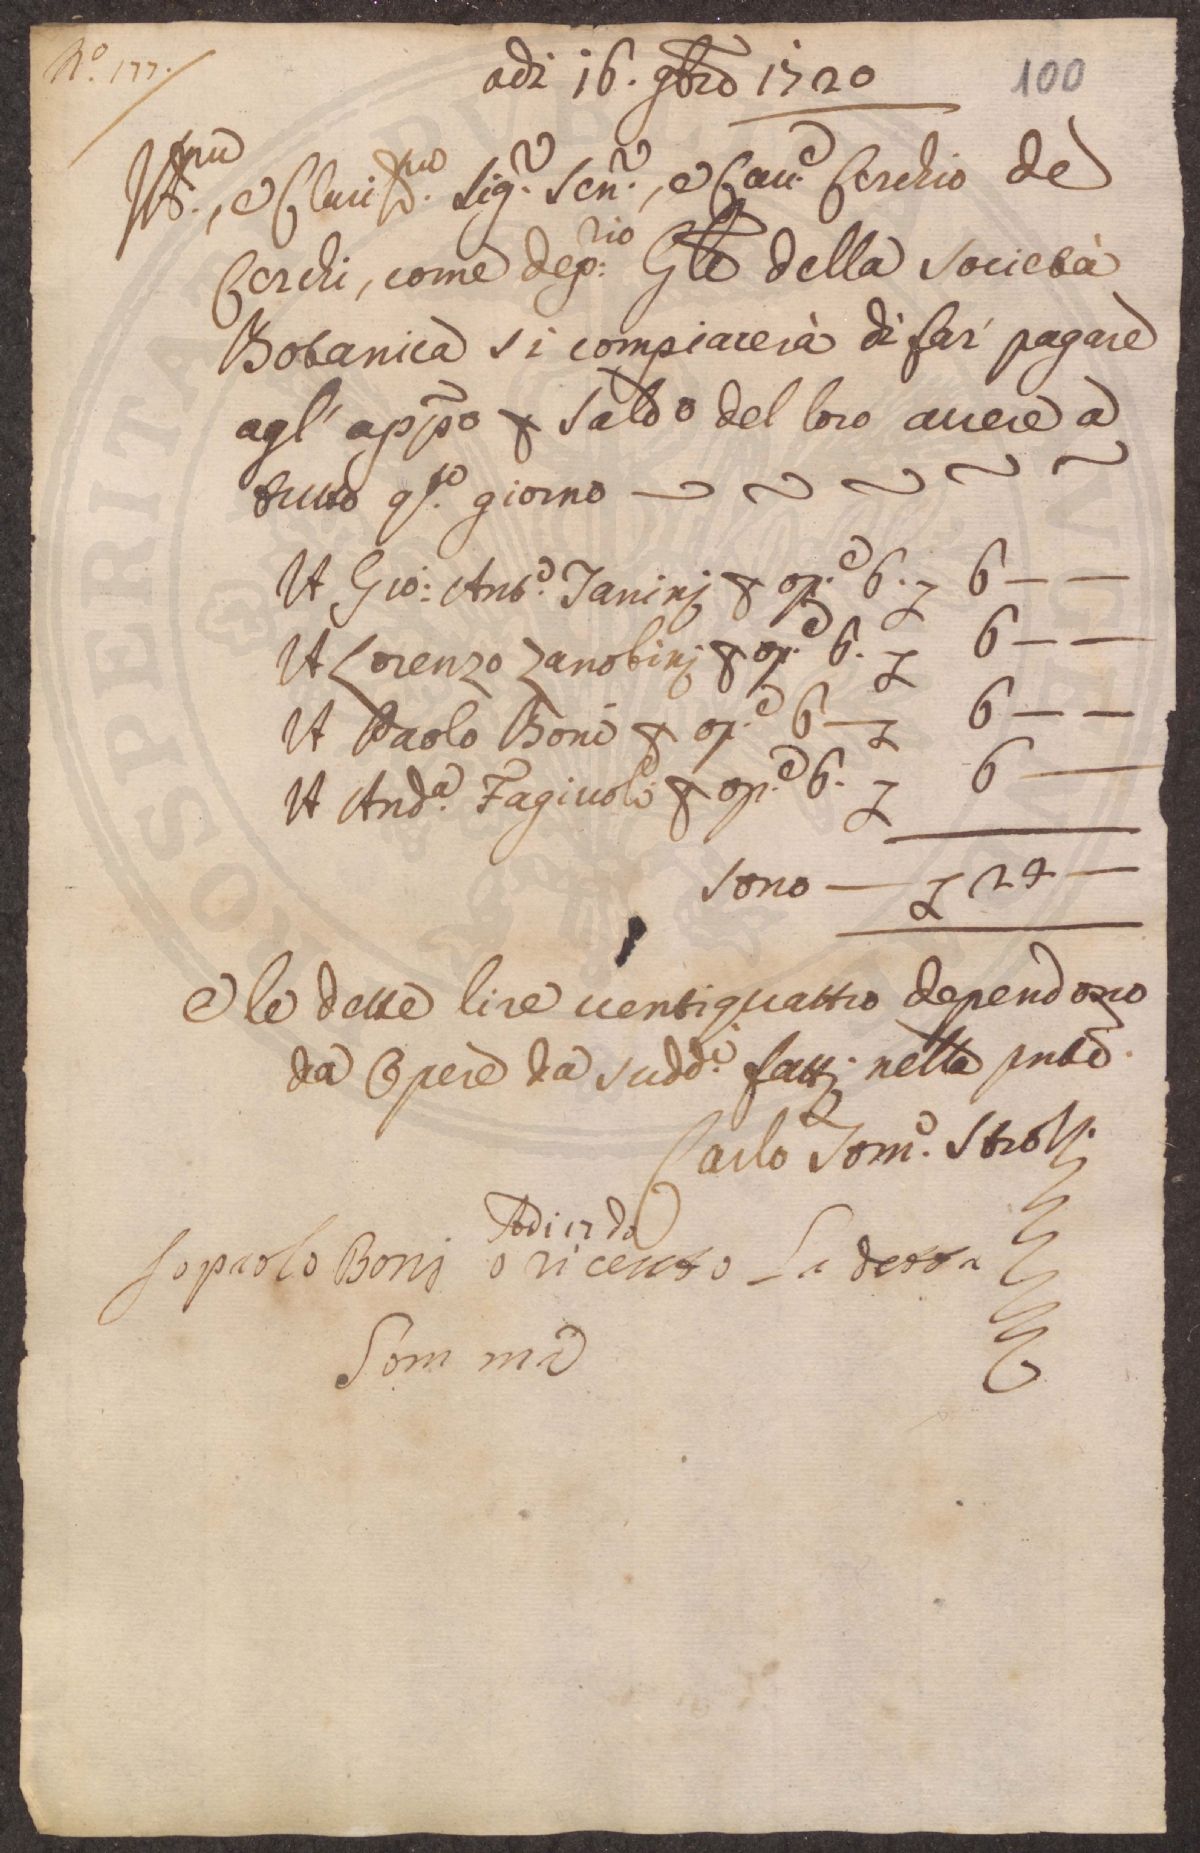 N.º 177.
adi 16. 9bre 1720
100
Ill.mo, e Clariss.mo Sig.r Sen.r, e Cau.e Cerchio de
Cerchi, come dep:rio Gle della Società
Botanica si compiacerà di far pagare
agl' app̃o p saldo del loro auere a
tutto q.sto giorno
A Gio: Ant.o Janinj p op.e 6. £ 6 — —
A Lorenzo Zanobinj p op.e 6. £ 6 — —
A Paolo Boni p op.e 6 — £ 6 — —
A And.a Fagiuoli p op.e 6. £ 6 —
sono — £ 24 —
e le dette lire uentiquattro dependono
da Opere da sudd.i fatt nella pnte
Carlo Tom.o Stroz.
Adi 17 do
Io paolo Bonj o riceuto La detta
Somma
PVBLICAE
PROSPERITATI